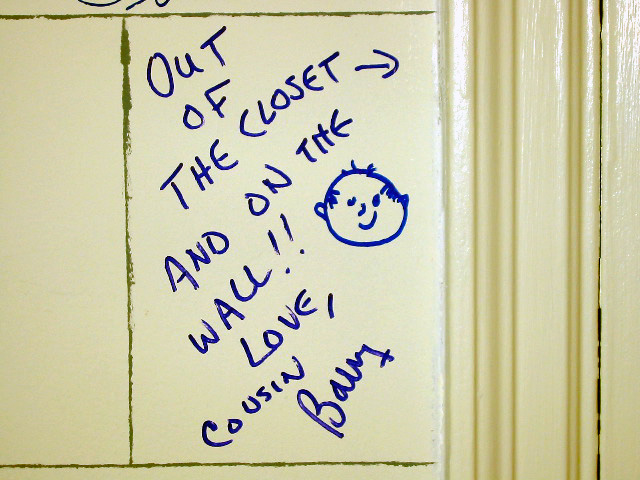 OUT
OF
THE CLOSET →
AND ON THE
WALL!!
LOVE,
COUSIN
Barry